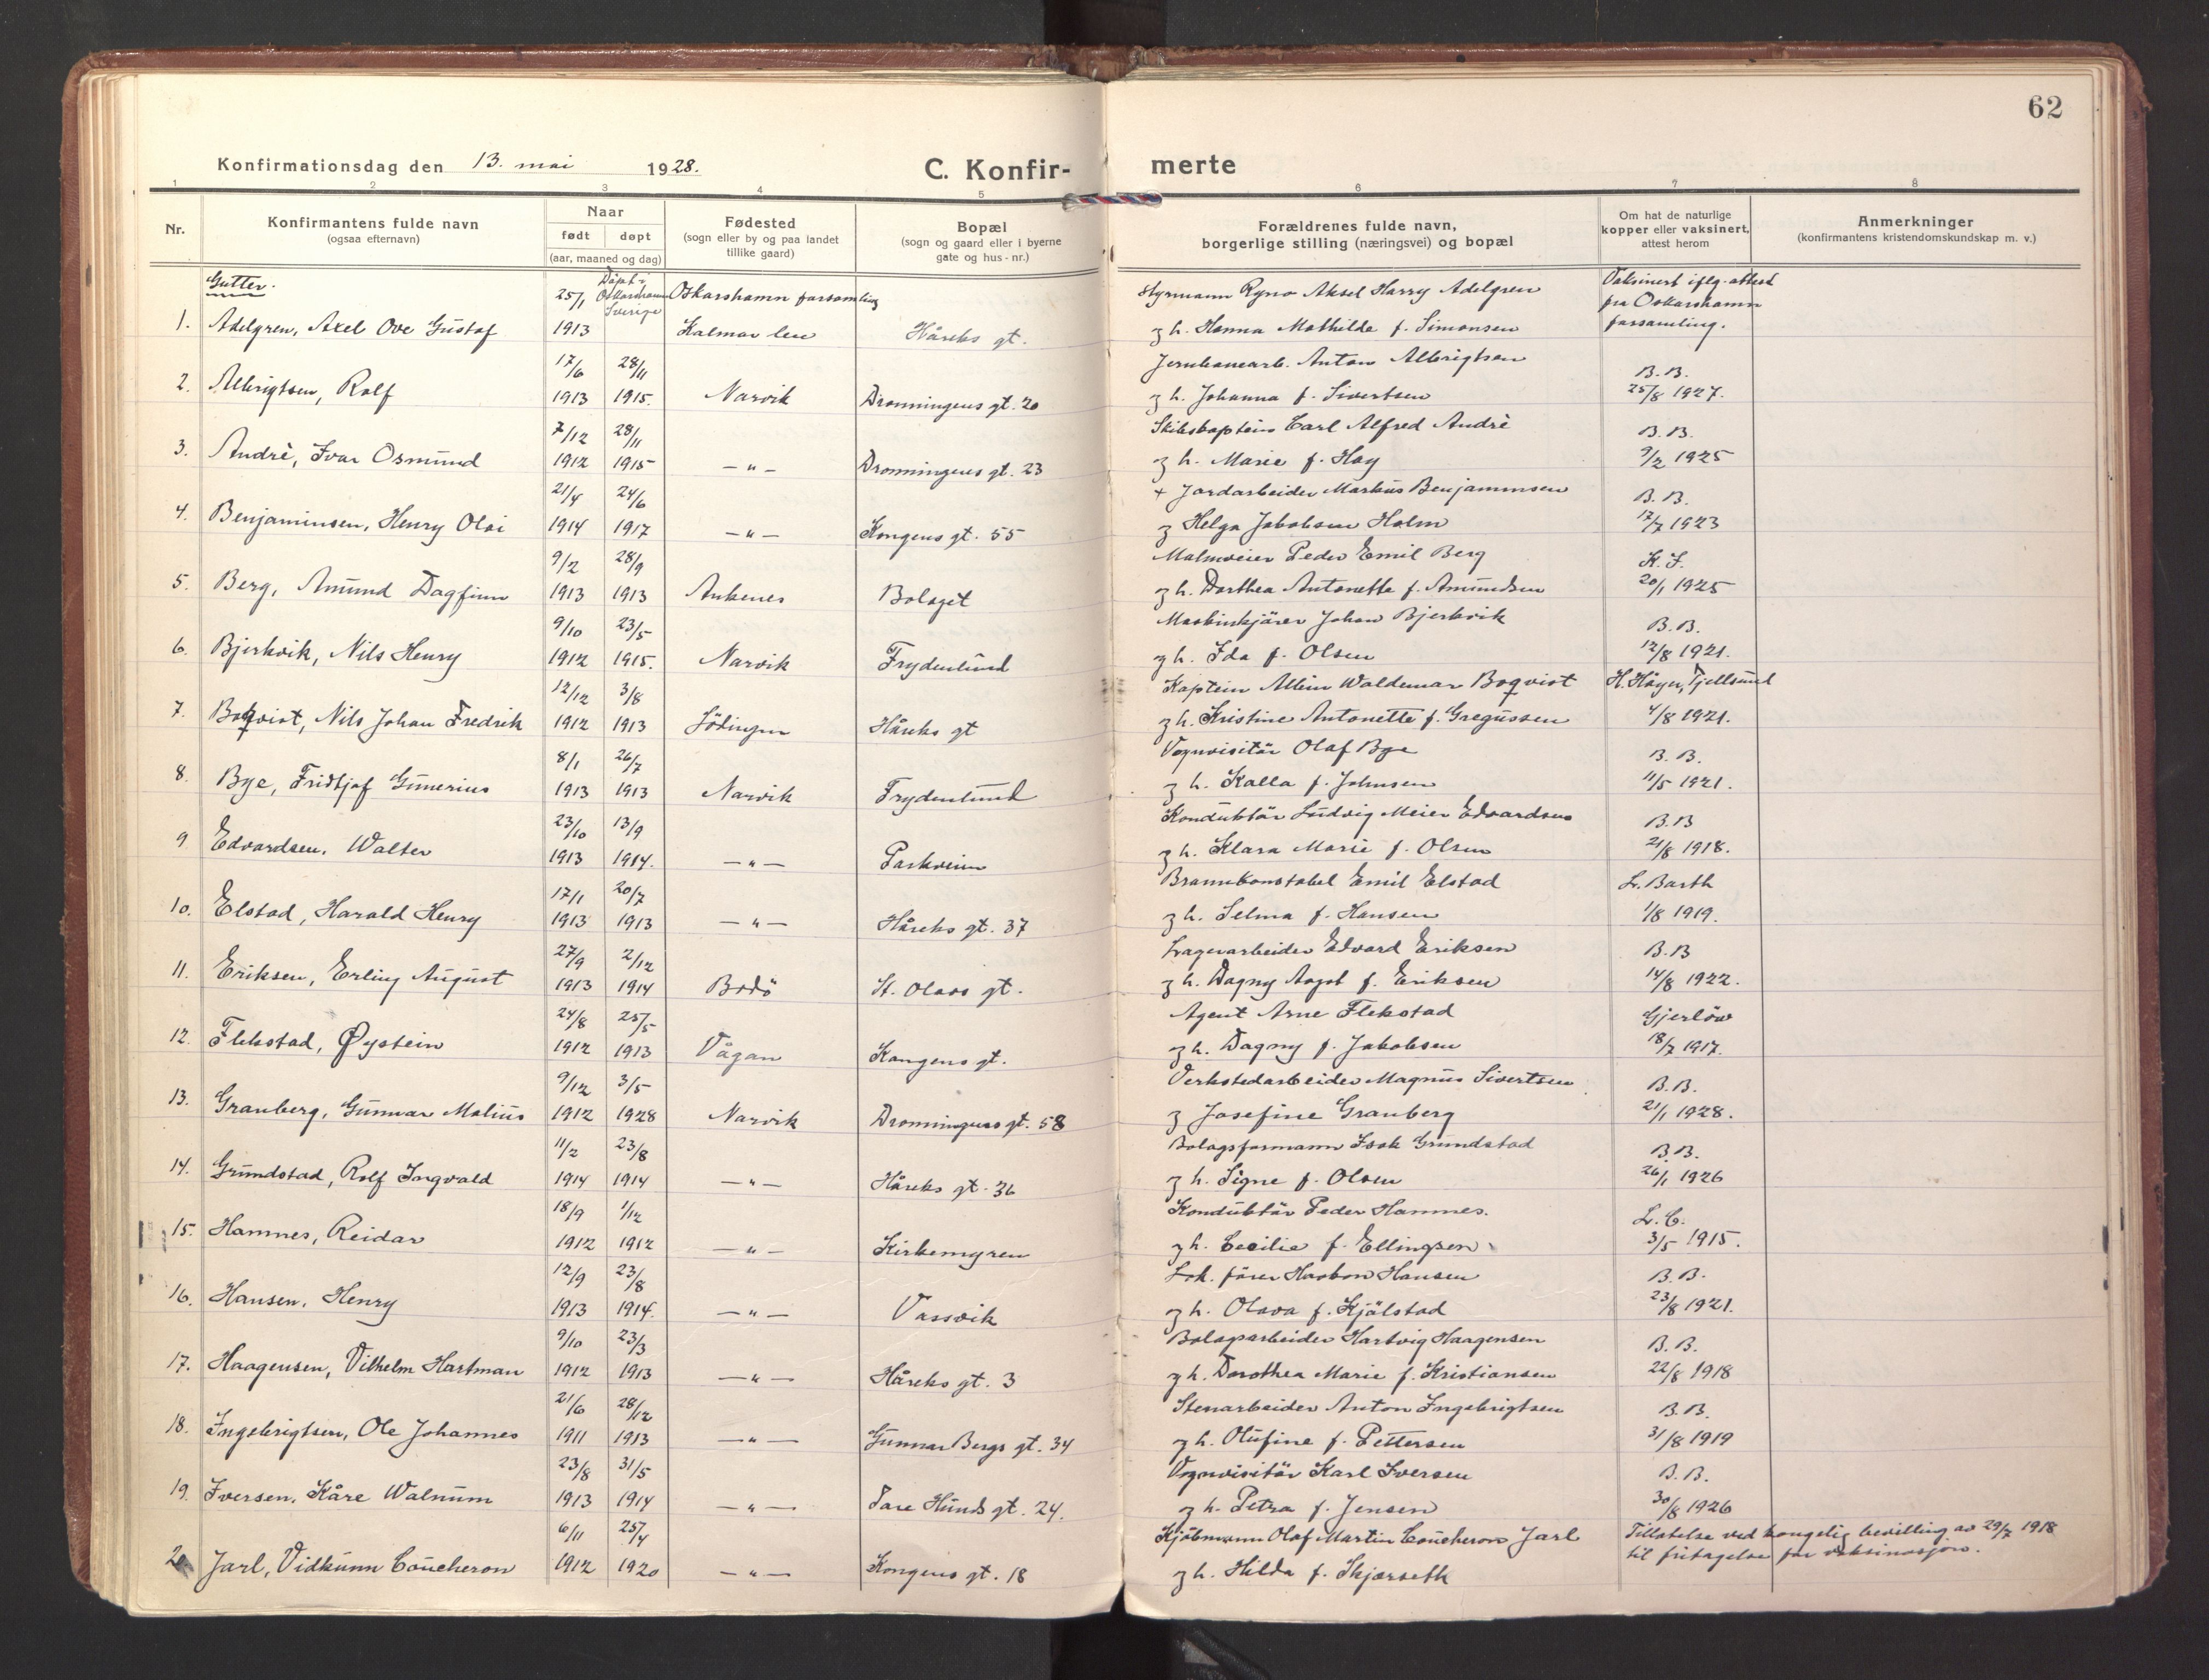 62
Konfirmationsdag den 13. mai 1928.
C. Konfir- merte
1 2 3 4 5 6 7 8
Nr.
Konfirmantens fulde navn
(ogsaa efternavn)
Naar
født døpt
(aar, maaned og dag)
Fødested
(sogn eller by og paa landet
tillike gaard)
Bopæl
(sogn og gaard eller i byerne
gate og hus-nr.)
Forældrenes fulde navn,
borgerlige stilling (næringsvei) og bopæl
Om hat de naturlige
kopper eller vaksinert,
attest herom
Anmerkninger
(konfirmantens kristendomskundskap m. v.)
Gutter.
25/1 Döpt i Oskarshamn Sverige Oskarshamn forsamling Styrmann Ryno Aksel Harry Adelgren Vaksinert iflg. attest fra Oskarshamn
1. Adelgren, Axel Ove Gustaf 1913 Kalmar len Håreks gt. g h. Hanna Mathilde f. Simonsen forsamling.
17/6 28/11 Jernbanearb. Anton Albrigtsen B.B.
2. Albrigtsen, Rolf 1913 1915. Narvik Dronningens gt. 20 g h. Johanna f. Sivertsen 25/8 1927.
7/12 28/11 Skibskaptein Carl Alfred Andrè B.B.
3. Andrè, Ivar Osmund 1912 1915 — " — Dronningens gt. 23 g h. Marie f. Hay 9/2 1925
21/4 24/6 + Jordarbeider Markus Benjaminsen B.B.
4. Benjaminsen, Henry Olai 1914 1917 — " — Kongens gt. 55 g Helga Jakobsen Holm 17/7 1923
9/2 28/9 Malmveier Peder Emil Berg K.J.
5. Berg, Amund Dagfinn 1913 1913 Ankenes Bolaget g h. Dorthea Antonette f. Amundsen 20/1 1925
9/10 23/5 Maskinkjörer Johan Bjerkvik B.B.
6. Bjerkvik, Nils Henry 1912 1915. Narvik Frydenlund g h. Ida f. Olsen 12/8 1921.
12/12 3/8 Kaptein Albin Waldemar Boqvist H. Höyer, Tjellsund
7. Boqvist, Nils Johan Fredrik 1912 1913 Lödingen Håreks gt g h. Kristine Antonette f. Gregussen 4/8 1921.
8/1 26/7 Vognvisitör Olaf Bye B.B.
8. Bye, Fridtjof Gunerius 1913 1913 Narvik Frydenlund g h. Kalla f. Johnsen 11/5 1921.
23/10 13/9 Konduktör Ludvig Meier Edvardsen B.B
9 Edvardsen, Walter 1913 1914. — " — Parkveien g h. Klara Marie f. Olsen 21/8 1918.
17/1 20/7 Brannkonstabel Emil Elstad L. Barth
10. Elstad, Harald Henry 1913 1913 — " — Håreks gt. 37 g h. Selma f. Hansen 1/8 1919.
27/9 2/12 Lagerarbeider Edvard Eriksen B.B
11. Eriksen, Erling August 1913 1914 Bodö St. Olavs gt. g h. Dagny f. Eriksen 14/8 1922.
24/8 25/5 Agent Arne Flekstad Gjerlöw
12. Flekstad, Øystein 1912 1913 Vågan Kongens gt. g h. Dagny f. Jakobsen 18/7 1917.
9/12 3/5 Verkstedarbeider Magnus Sivertsen B.B.
13. Granberg, Gunnar Malius 1912 1928 Narvik Dronningens gt. 58 g Josefine Granberg 21/1 1928.
11/2 23/8 Bolagsformann Isak Grundstad B.B.
14. Grundstad, Rolf Ingvald 1914 1914 — " — Håreks gt. 36 g h. Signe f. Olsen 26/1 1926
18/9 1/12 Konduktör Peder Hamnes. L.C.
15. Hamnes, Reidar 1912 1912 — " — Kirkemyren g h. Cecilie f. Ellingsen 3/5 1915.
12/9 23/8 Lok. förer Haakon Hansen B.B.
16. Hansen, Henry 1913 1914. — " — Vassvik g h. Olava f. Kjälstad 23/8 1921.
9/10 23/3 Bolagsarbeider Hartvig Haagensen B.B.
17. Haagensen, Vilhelm Hartman 1912 1913 — " — Håreks gt. 3 g h. Dorothea Marie f. Kristiansen 22/8 1918
21/6 28/12 Stenarbeider Anton Ingebrigtsen B.B.
18. Ingebrigtsen, Ole Johannes 1911 1913 — " — Gunnar Bergs gt. 34 g h. Olufine f. Pettersen 31/8 1919
23/8 31/5 Vognvisitör Karl Iversen B.B.
19. Iversen, Kåre Walnum 1913 1914 — " — Tore Hunds gt. 24. g h. Petra f. Jensen 30/8 1926
6/11 25/4 Kjöbmann Olaf Martin Coucheron Jarl Tillatelse ved kongelig bevilling av 29/7 1918
20 Jarl, Vidkunn Coucheron 1912 1920 — " — Kongens gt. 18 g h. Hilda f. Skjærseth til fritagelse for vaksinasjon.